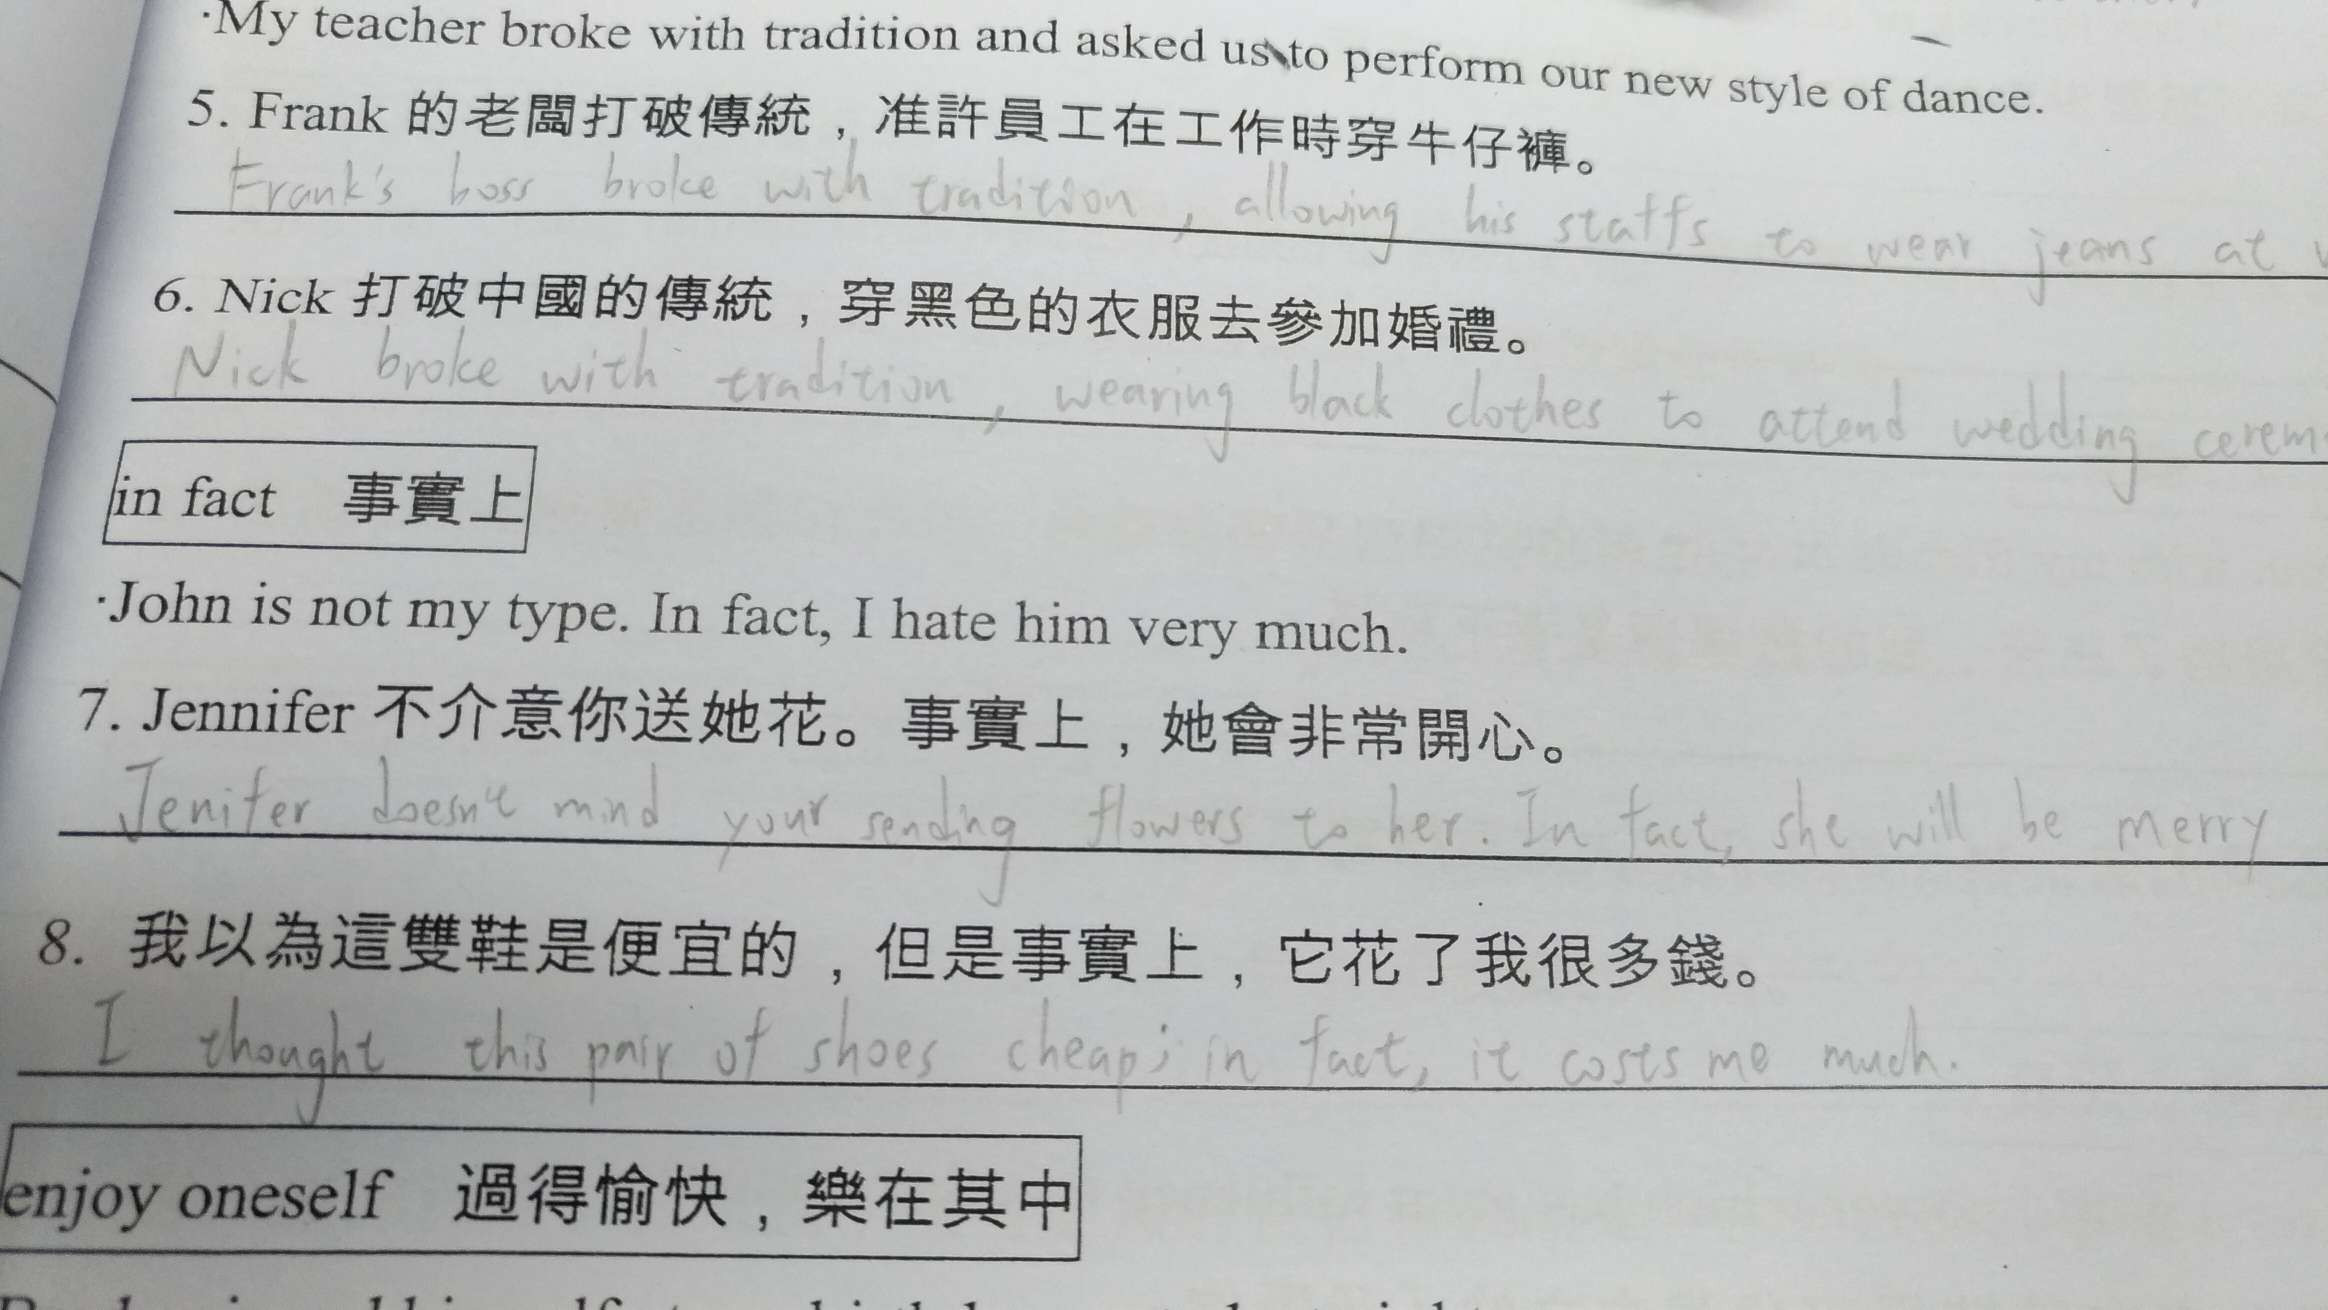 ·My teacher broke with tradition and asked us to perform our new style of dance.
5. Frank 的老闆打破傳統，准許員工在工作時穿牛仔褲。
Frank's boss broke with tradition, allowing his staffs to wear jeans at
6. Nick 打破中國的傳統，穿黑色的衣服去參加婚禮。
Nick broke with tradition, wearing black clothes to attend wedding
in fact 事實上
·John is not my type. In fact, I hate him very much.
7. Jennifer 不介意你送她花。事實上，她會非常開心。
Jenifer doesn't mind your sending flowers to her. In fact, she will be merry
8. 我以為這雙鞋是便宜的，但是事實上，它花了我很多錢。
I thought this pair of shoes cheap; in fact, it costs me much.
enjoy oneself 過得愉快，樂在其中